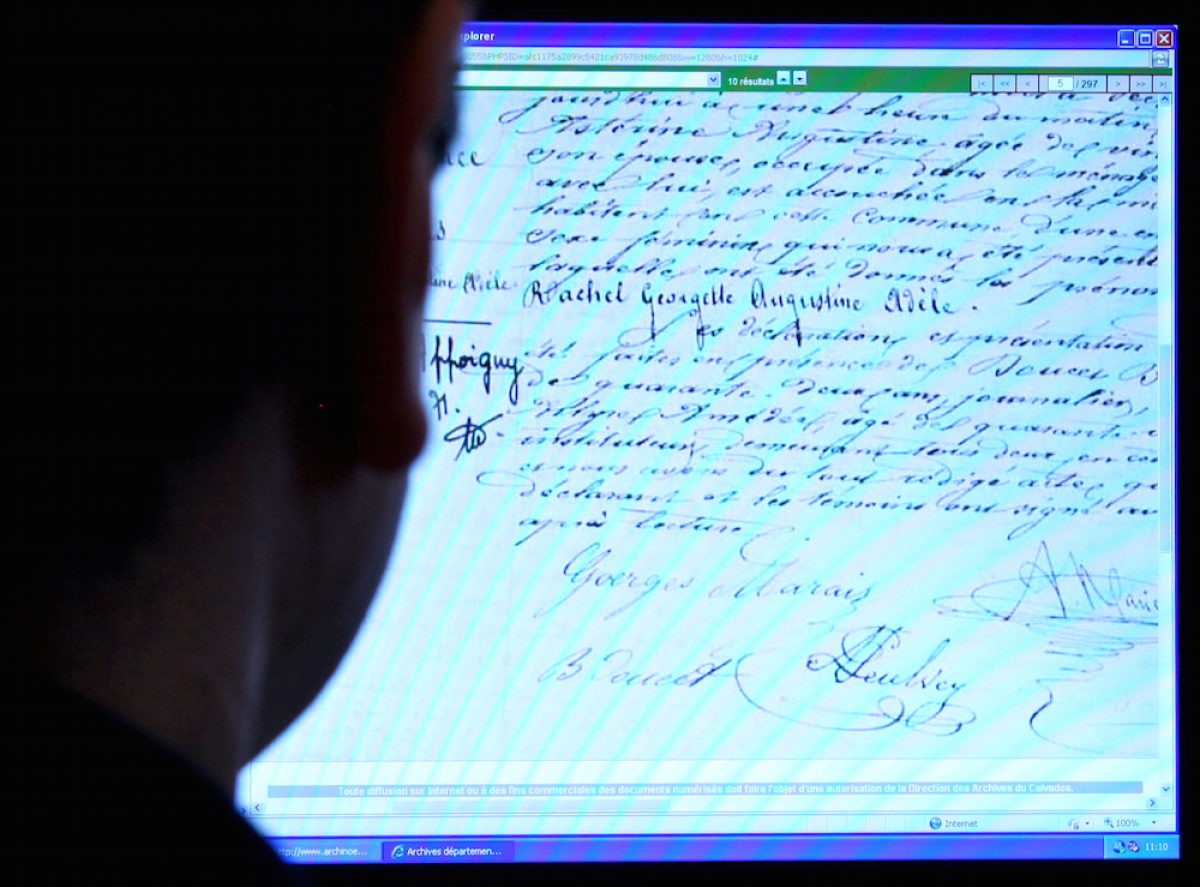 plorer
10 résultats
5 / 297
jourd'hui à une heure du matin
Astérine Augustine âgée de vin
son épouse, occupée dans le ménage
avec lui, est accouchée en la m
habitent en cette commune, d'une
sexe féminin qui nous a été présent
laquelle ont été donnés les prénom
Rachel Georgette Augustine Adèle.
ine Adèle
es déclaration et présentation
été faites en présence de Doucet B
de quarante-deux ans, journalier,
Amédée, agé de quarante
instituteur, demeurant tous deux en co
et nous avons du tout rédigé acte, q
déclarant et les témoins ont signé av
après lecture.
ppoigny
Georges Marais
A. Marie
B Doucet
Toute diffusion sur internet ou à des fins commerciales des documents numérisés doit faire l'objet d'une autorisation de la Direction des Archives du Calvados.
Internet
100%
ttp://www.archinoe...
Archives départemen...
11:10